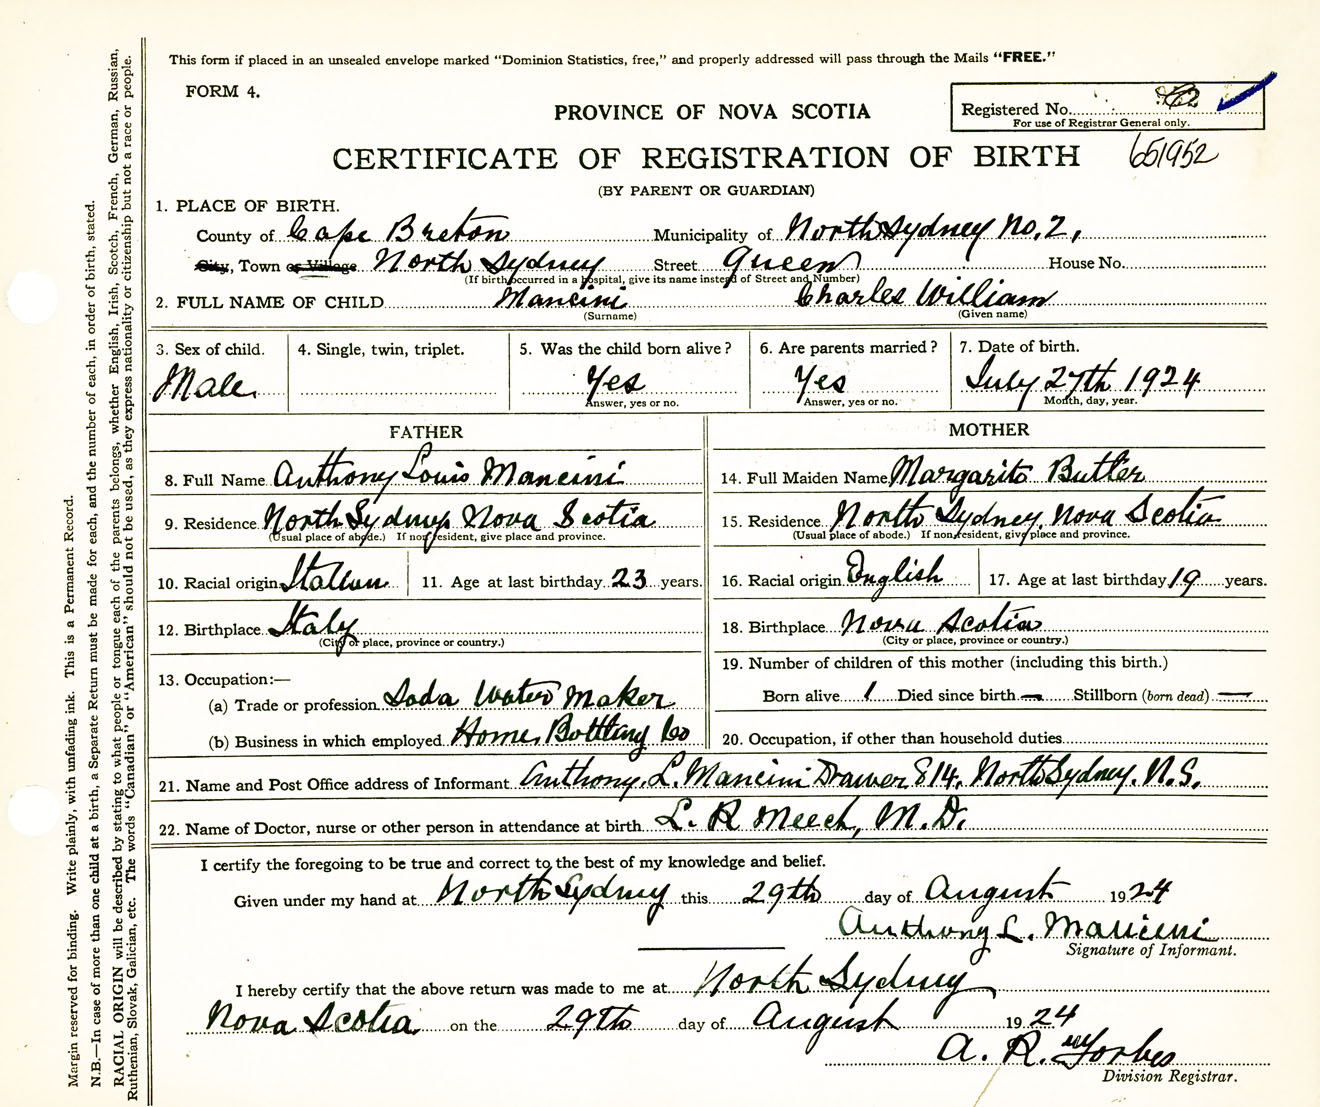 This form if placed in an unsealed envelope marked "Dominion Statistics, free," and properly addressed will pass through the Mails "FREE."
FORM 4.
PROVINCE OF NOVA SCOTIA
Registered No.
For use of Registrar General only.
CERTIFICATE OF REGISTRATION OF BIRTH 651952
(BY PARENT OR GUARDIAN)
1. PLACE OF BIRTH.
County of Cape Breton Municipality of North Sydney No. 2,
City, Town or Village North Sydney Street Queen House No.
(If birth occurred in a hospital, give its name instead of Street and Number)
2. FULL NAME OF CHILD Mancini Charles William
(Surname) (Given name)
3. Sex of child. 4. Single, twin, triplet. 5. Was the child born alive? 6. Are parents married? 7. Date of birth.
Male. Yes Yes July 27th 1924
Answer, yes or no. Answer, yes or no. Month, day, year.
FATHER MOTHER
8. Full Name Anthony Louis Mancini 14. Full Maiden Name Margarite Butler
9. Residence North Sydney Nova Scotia 15. Residence North Sydney, Nova Scotia
(Usual place of abode.) If non-resident, give place and province. (Usual place of abode.) If non-resident, give place and province.
10. Racial origin Italian 11. Age at last birthday 23 years. 16. Racial origin English 17. Age at last birthday 19 years.
12. Birthplace Italy 18. Birthplace Nova Scotia
(City or place, province or country.) (City or place, province or country.)
13. Occupation:— 19. Number of children of this mother (including this birth.)
(a) Trade or profession Soda Water Maker Born alive 1 Died since birth — Stillborn (born dead) —
(b) Business in which employed Home Bottling Co 20. Occupation, if other than household duties
21. Name and Post Office address of Informant Anthony. L. Mancini Drawer 814. North Sydney. N.S.
22. Name of Doctor, nurse or other person in attendance at birth L. R Meech, M.D.
I certify the foregoing to be true and correct to the best of my knowledge and belief.
Given under my hand at North Sydney this 29th day of August 1924
Anthony L. Mancini
Signature of Informant.
I hereby certify that the above return was made to me at North Sydney
Nova Scotia on the 29th day of August 1924
A. R. Forbes
Division Registrar.
Margin reserved for binding. Write plainly, with unfading ink. This is a Permanent Record.
N.B.—In case of more than one child at a birth, a Separate Return must be made for each, and the number of each, in order of birth, stated.
RACIAL ORIGIN will be described by stating to what people or tongue each of the parents belongs, whether English, Irish, Scotch, French, German, Russian,
Ruthenian, Slovak, Galician, etc. The words "Canadian" or "American" should not be used, as they express nationality or citizenship but not a race or people.